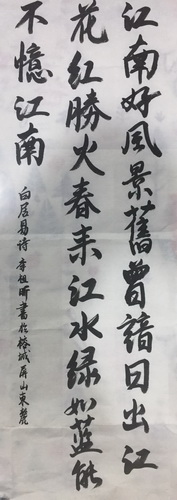 江南好風景舊曾諳日出江
花紅勝火春来江水绿如蓝能
不憶江南
白居易詩李祖昕書於榕城屏山東麓